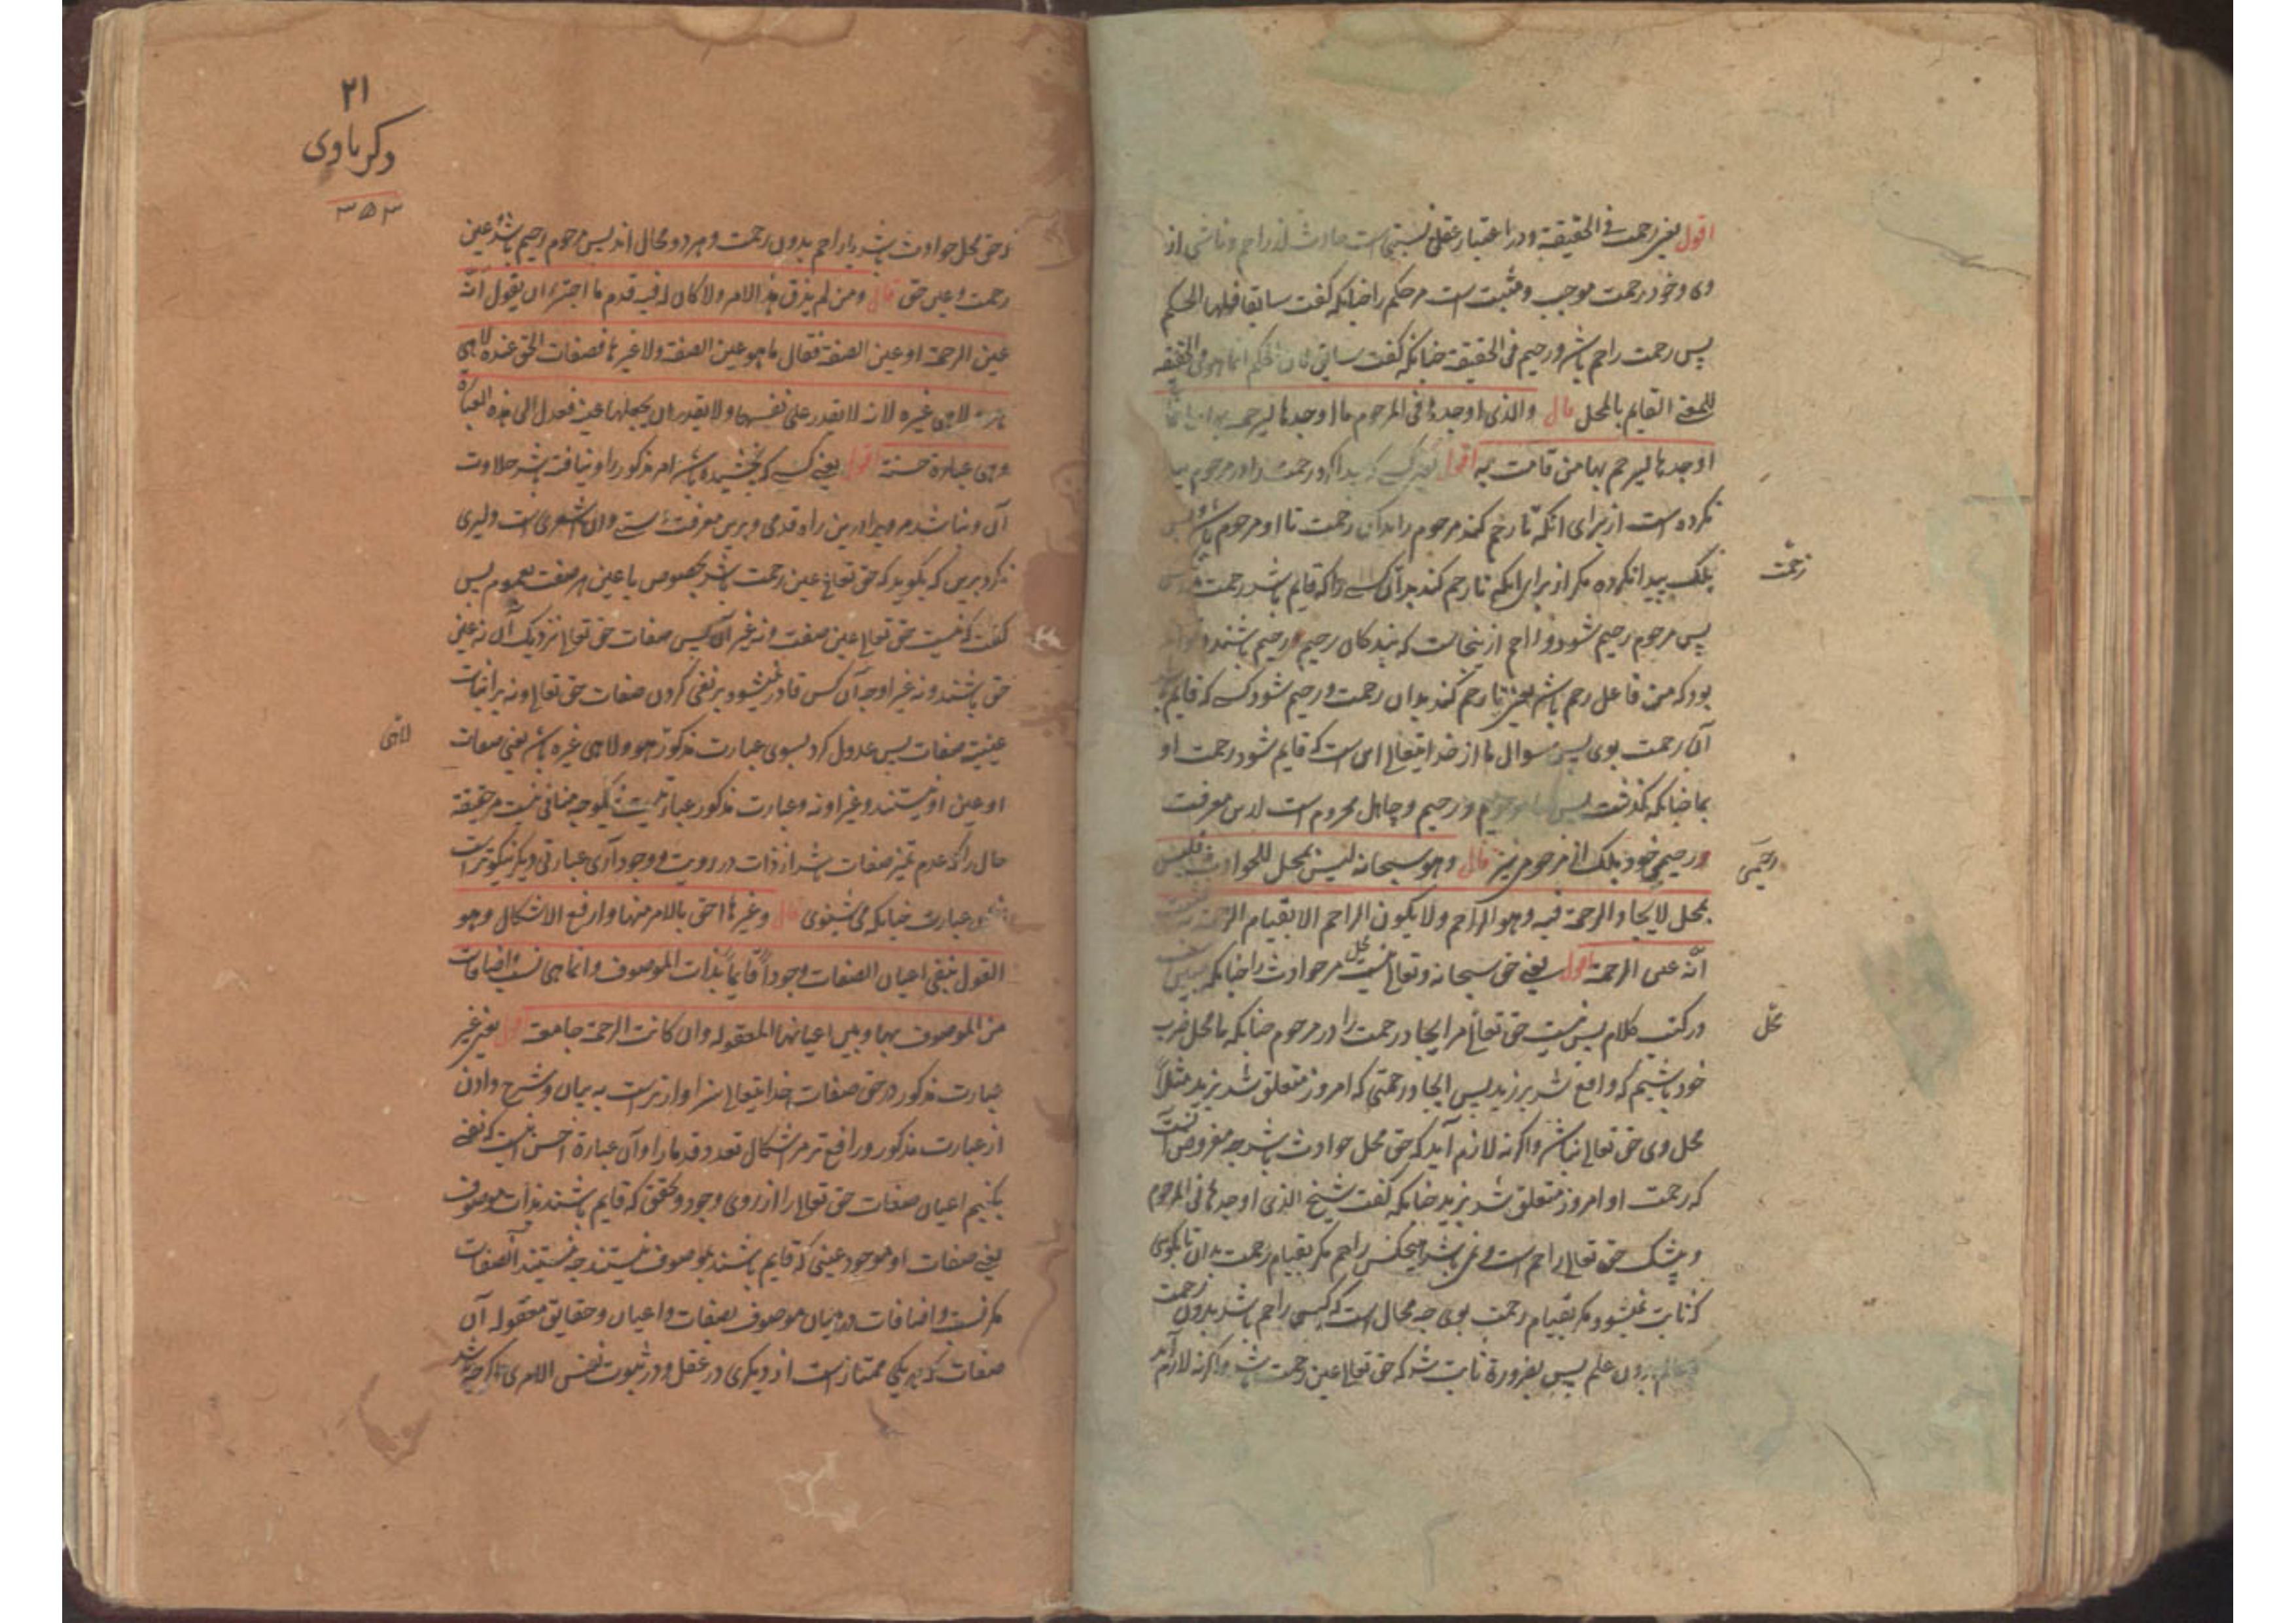 اقول یعنی رحمت فی الحقیقة و در اعتبار عقل نسبتی است حادث از راحم و ناشی از
وی و خود رحمت موجب و مثبت است مر حکم را چنانکه گفت سابقا فلها الحکم
پس رحمت راحم باشد و رحیم فی الحقیقة چنانکه گفت سابق فان الحکم انما هو فی الحقیقة
للمعنی القایم بالمحل قال والذی اوجده فی المرحوم ما اوجدها لیرحمه بها وانما
اوجدها لیرحم بها من قامت به اقول یعنی کسی که پیدا کرد رحمت را در مرحوم پیدا
نکرده است از برای آنکه تا رحم کند مرحوم را بدان رحمت تا او مرحوم باشد و بس
بلکه پیدا نکرده مگر از برای اینکه تا رحم کند بدان کسی را که قایم باشد رحمت
زحمت
پس مرحوم رحیم شود و راحم ازینجاست که بندگان رحیم و رحیم باشند
بود که من فاعل رحم باشم یعنی تا رحم کند بدان رحمت و رحیم شود کسی که قایم
آن رحمت بوی پس سوال ما از خدایتعالی این است که قایم شود رحمت او
بما چنانکه گذشت پس و رحیم و جاهل محروم است ازین معرفت
و رحیمی خود بلکه از مرحومی نیز قال وهو سبحانه لیس بمحل للحوادث فلیس
رحیمی
بمحل لایجاد الرحمة فیه وهو الراحم ولا یکون الراحم الا بقیام الرحمة به فثبت
انه عین الرحمة اقول یعنی حق سبحانه و تعالی نیست محل مر حوادث را چنانکه
در کتب کلام پس نیست حق تعالی مر ایجاد رحمت را در مرحوم چنانکه ما محل ضرب
محل
خود باشیم که واقع شد بر زید پس ایجاد رحمتی که امروز متعلق شد بزید مثلاً
محل وی حق تعالی نباشد واگرنه لازم آید که حق محل حوادث باشد چه مفروض آنست
که رحمت او امروز متعلق شد بزید چنانکه گفت شیخ الذی اوجدها فی المرحوم
و بیشک حق تعالی راحم است و نمی باشد هیچکس راحم مگر بقیام رحمت بدان
ثابت نمیشود مگر بقیام رحمت بوی چه محال است که کسی راحم باشد بدون رحمت
عالم بدون علم پس بضرورة ثابت شد که حق تعالی عین رحمت باشد واگرنه لازم آید
۲۱
ذکریاوی
۳۵۳
که حق محل حوادث باشد یا راحم بدون رحمت و هر دو محال اند پس مرحوم رحیم باشد و عین
رحمت و عین حق قال ومن لم یذق هذا الامر ولا کان له فیه قدم ما اجترء ان یقول انه
عین الرحمة او عین الصفة فقال ما هو عین الصفة ولا غیرها فصفات الحق عنده لا هی
هو ولا هی غیره لانه لا یقدر علی نفیها ولا یقدر ان یجعلها عینه فعدل الی هذه العبارة
وهی عبارة حسنة اقول یعنی کسی که نچشیده باشد امر مذکور را و نیافته باشد حلاوت
آن و نباشد مر ویرا درین راه قدمی و برین معرفت است و ان اشعری است دلیری
نکرد برین که بگوید که حق تعالی عین رحمت باشد بخصوص یا عین هر صفت بعموم پس
گفت که نیست حق تعالی عین صفت و نه غیر آن پس صفات حق تعالی نزدیک آن نه عین
حق باشند و نه غیر او چه آن کس قادر نمیشود بر نفی کردن صفات حق تعالی و نه بر اثبات
عینیة صفات پس عدول کرد بسوی عبارت مذکور هو ولا هی غیره باشد یعنی صفات
لا هی
او عین او نیستند و غیر او نه و عبارت مذکور عبارتیست نیکو چه منافی نیست مر حقیقة
حال را که عدم تمیز صفات باشد از ذات در رویت و وجود آری عبارتی دیگر نیکوتر است
ازین عبارت چنانکه می شنوی قال وغیرها احق بالامر منها وارفع للاشکال وهو
القول بنفی اعیان الصفات وجوداً قایماً بذات الموصوف وانما هی نسب واضافات
من الموصوف بها وبین اعیانها المعقوله وان کانت الرحمة جامعة اقول یعنی غیر
عبارت مذکور در حق صفات خدایتعالی سزاوارتر است به بیان و شرح دادن
از عبارت مذکور و رافع تر مر اشکال تعدد قدما را و آن عبارة احسن اینست که نفی
بکنیم اعیان صفات حق تعالی را از روی وجود و تحقق که قایم باشند بذات موصوف
یعنی صفات او موجود عینی که قایم باشند بموصوف نیستند چه نیستند آنصفات
مگر نسب و اضافات در میان موصوف بصفات و اعیان و حقایق معقوله آن
صفات که هر یکی ممتاز است از دیگری در عقل و در ثبوت نفس الامری اگرچه باشد